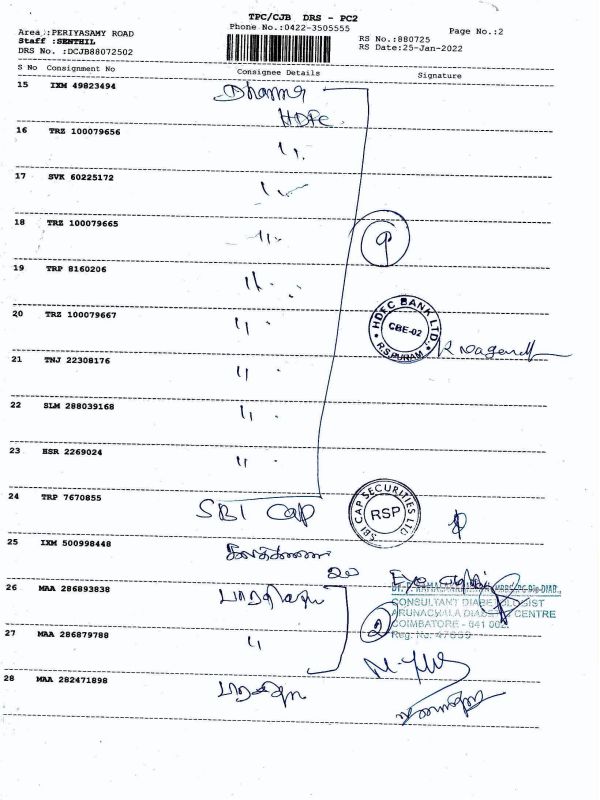 TPC/CJB DRS - PC2
Phone No.:0422-3505555
Page No.:2
Area :PERIYASAMY ROAD
Staff :SENTHIL
DRS No. :DCJB88072502
RS No.:880725
RS Date:25-Jan-2022
S No Consignment No Consignee Details Signature
15 IXM 49823494
HDFC
16 TRZ 100079656 ''
17 SVK 60225172 ''
18 TRZ 100079665 ''
19 TRP 8160206 ''
9
20 TRZ 100079667 ''
HDFC BANK LTD.,
CBE-02
R.S.PURAM
21 TNJ 22308176 ''
22 SLM 288039168 ''
23 HSR 2269024 ''
24 TRP 7670855
SBI Cap
SBI CAP SECURITIES LTD
RSP
25 IXM 500998448
26 MAA 286893838
CONSULTANT DIABETOLOGIST
ARUNACHALA DIABETES CENTRE
COIMBATORE - 641 002.
Reg. No: 47669
2
27 MAA 286879788 ''
28 MAA 282471898